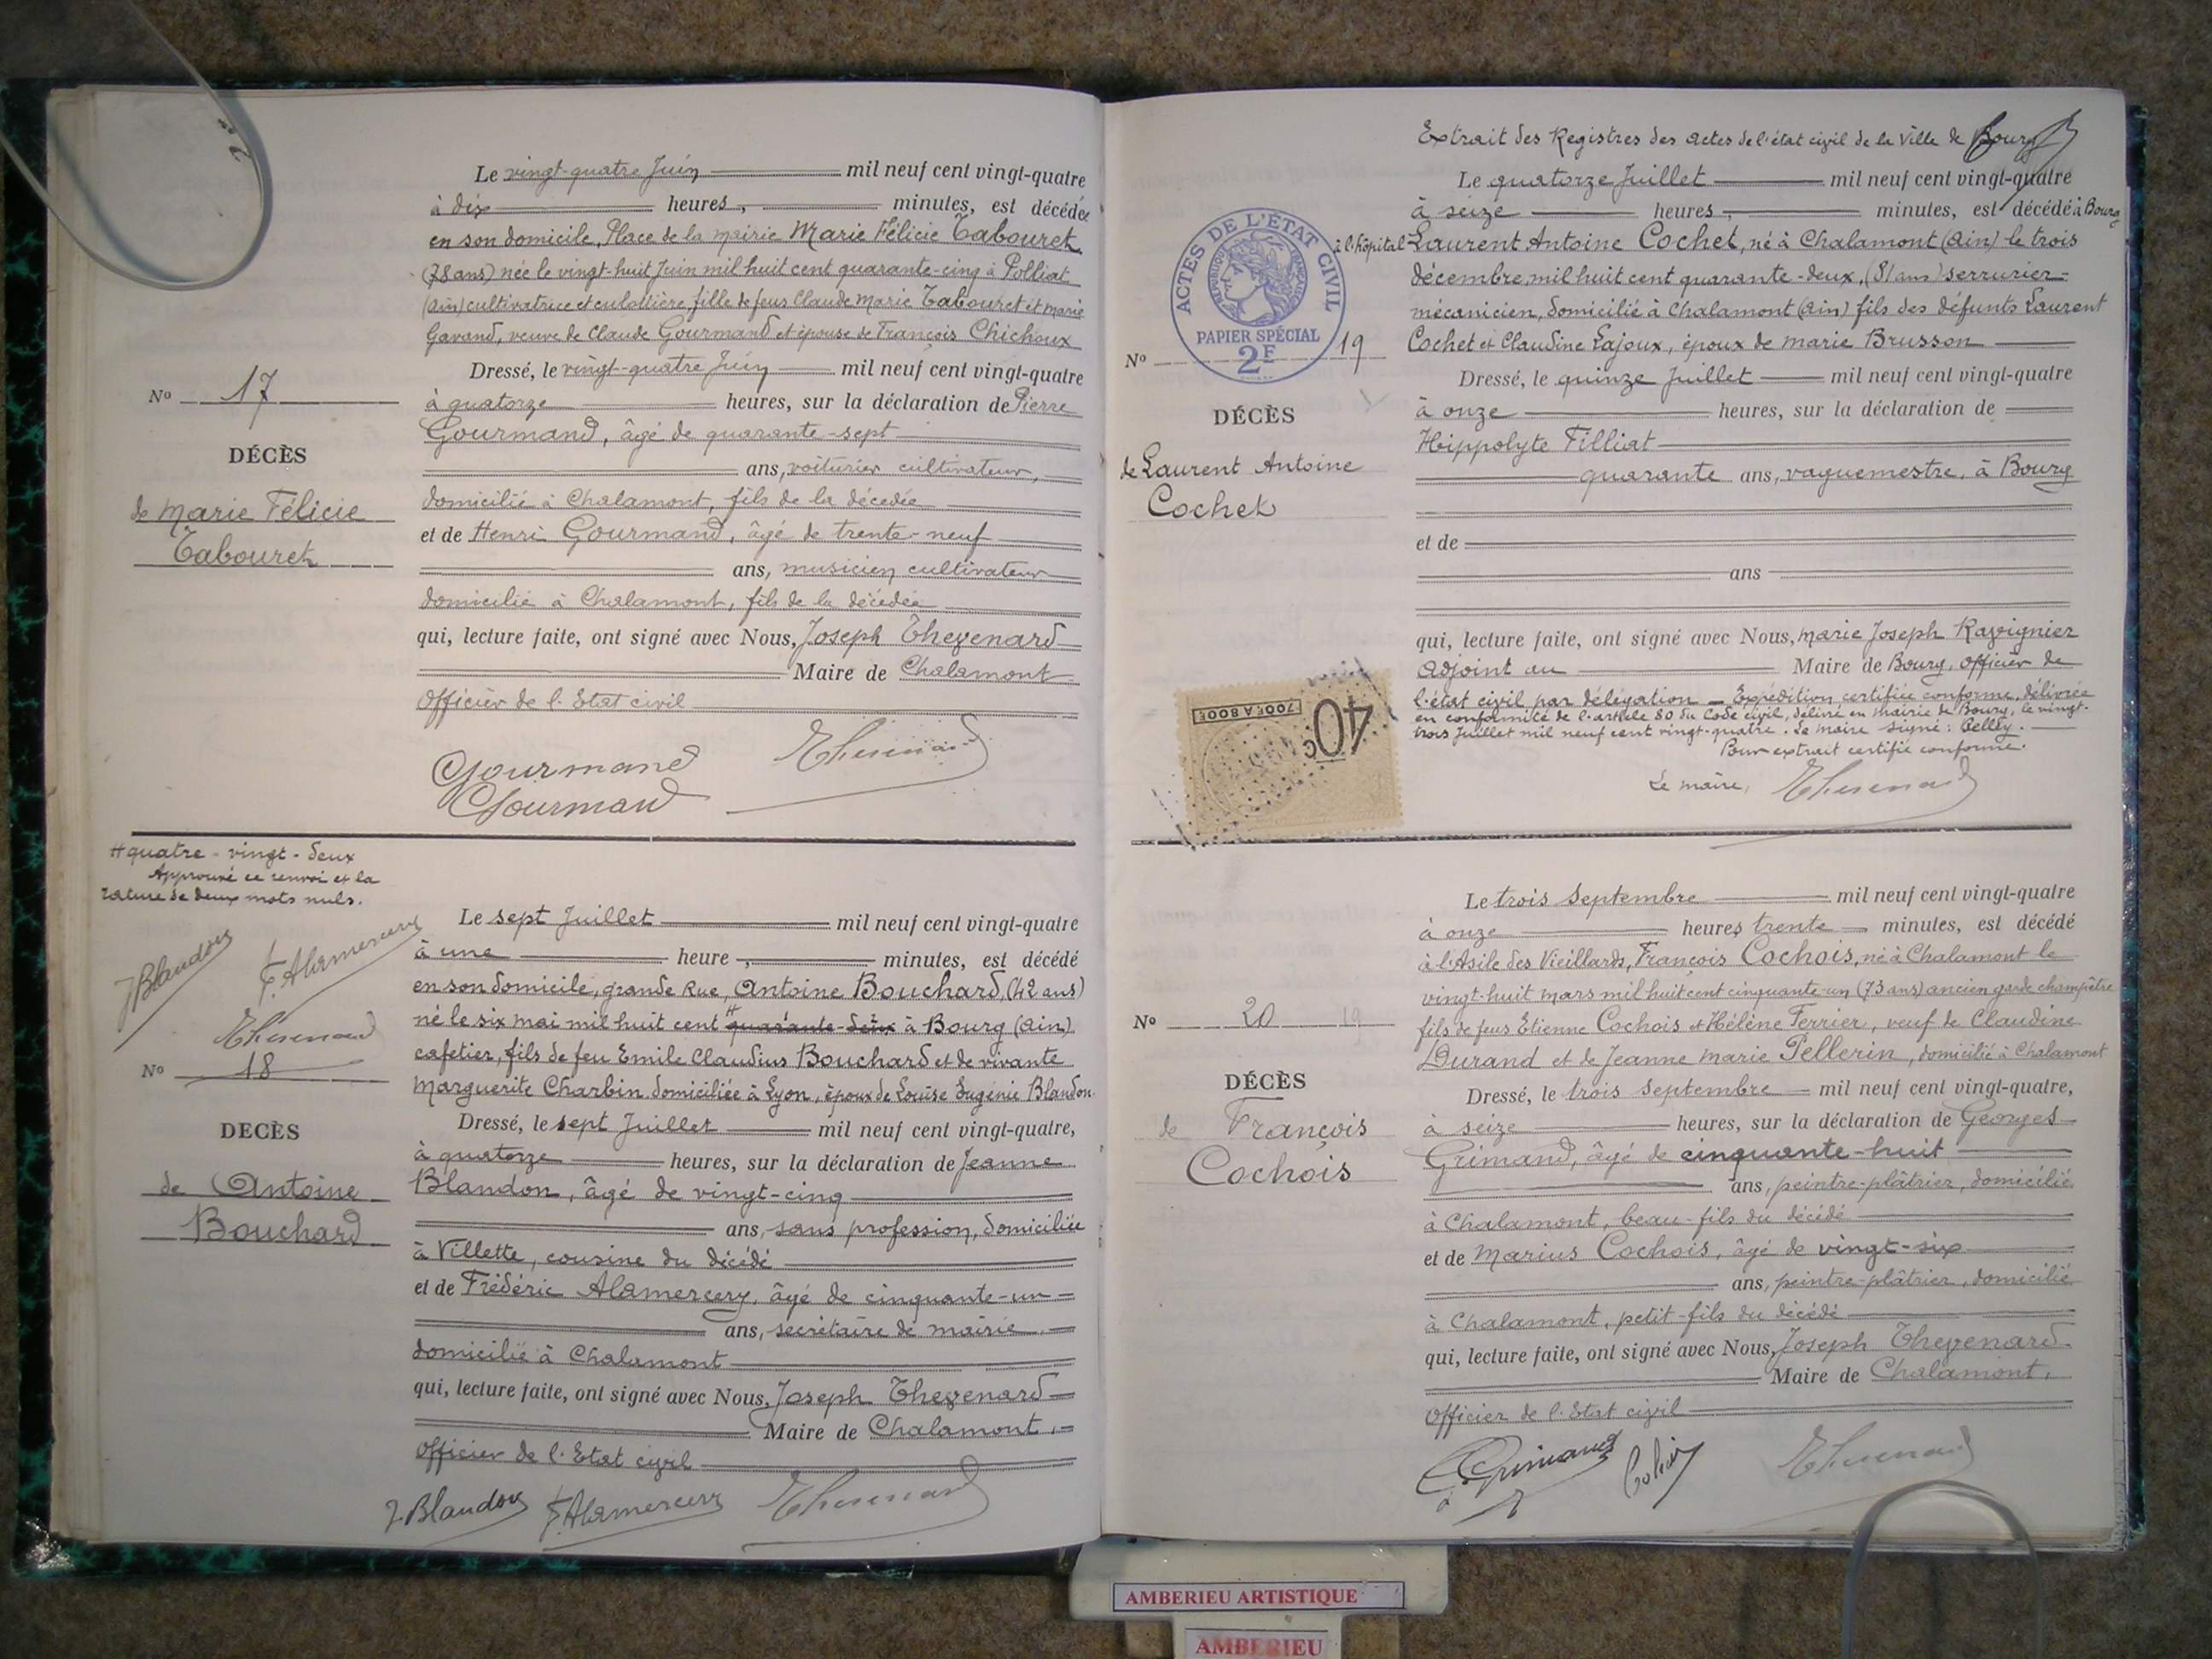 Le vingt-quatre Juin mil neuf cent vingt-quatre
à dix heures, minutes, est décédée
en son domicile, Place de la mairie Marie Félicie Tabouret
(78 ans) née le vingt-huit Juin mil huit cent quarante-cinq à Polliat
(Ain) cultivatrice et culottière, fille de feus Claude Marie Tabouret et marie
Gavand, veuve de Claude Gourmand et épouse de François Chichoux
Dressé, le vingt-quatre Juin mil neuf cent vingt-quatre
à quatorze heures, sur la déclaration de Pierre
Gourmand, âgé de quarante-sept
ans, voiturier cultivateur,
domicilié à Chalamont, fils de la décedée
et de Henri Gourmand, âgé de trente-neuf
ans, musicien cultivateur
domicilié à Chalamont, fils de la décédée
qui, lecture faite, ont signé avec Nous, Joseph Thevenard
Maire de Chalamont
Officier de l'Etat civil
Gourmand
Gourmand
Thevenard
No 17
DÉCÈS
de Marie Félicie
Tabouret
# quatre-vingt-deux
Approuvé ce renvoi et la
rature de deux mots nuls.
J Blandon
F. Alamercery
Thevenard
No 18
DECÈS
de Antoine
Bouchard
Le sept Juillet mil neuf cent vingt-quatre
à une heure, minutes, est décédé
en son domicile, grande Rue, Antoine Bouchard, (42 ans)
né le six mai mil huit cent # quarante-deux à Bourg (Ain)
cafetier, fils de feu Emile Claudius Bouchard et de vivante
Marguerite Charbin domiciliée à Lyon, époux de Louise Eugénie Blandon
Dressé, le sept Juillet mil neuf cent vingt-quatre,
à quatorze heures, sur la déclaration de Jeanne
Blandon, âgé de vingt-cinq
ans, sans profession, domiciliée
à Villette, cousine du décédé
et de Frédéric Alamercery, âgé de cinquante-un
ans, secrétaire de mairie
domicilié à Chalamont
qui, lecture faite, ont signé avec Nous, Joseph Thevenard
Maire de Chalamont,
Officier de l'Etat civil
J. Blandon F. Alamercery Thevenard
Extrait des Registres des actes de l'état civil de la Ville de Bourg
Le quatorze Juillet mil neuf cent vingt-quatre
à seize heures, minutes, est décédé à Bourg
à l'hôpital Laurent Antoine Cochet, né à Chalamont (Ain) le trois
décembre mil huit cent quarante-deux, (81 ans) serrurier-
mécanicien, domicilié à Chalamont (Ain) fils des défunts Laurent
Cochet et Claudine Lajoux, époux de marie Brusson
Dressé, le quinze Juillet mil neuf cent vingt-quatre
à onze heures, sur la déclaration de
Hippolyte Filliat
quarante ans, vaguemestre, à Bourg
et de
ans
qui, lecture faite, ont signé avec Nous, Marie Joseph Ravignier
adjoint au Maire de Bourg, officier de
l'état civil par délégation _ Expédition certifiée conforme, délivrée
en conformité de l'article 80 du Code civil, délivré en mairie de Bourg, le vingt-
trois Juillet mil neuf cent vingt-quatre. Le maire signé:
Pour extrait certifié conforme.
Le maire, Thevenard
ACTES DE L'ÉTAT CIVIL
RÉPUBLIQUE FRANÇAISE
PAPIER SPÉCIAL
2F
No 19
DÉCÈS
de Laurent Antoine
Cochet
40c
700F A 800F
Le trois Septembre mil neuf cent vingt-quatre
à onze heures trente minutes, est décédé
à l'Asile des Vieillards, François Cochois, né à Chalamont le
vingt-huit mars mil huit cent cinquante-un (73 ans) ancien garde champêtre
fils de feus Etienne Cochois et Hélène Ferrier, veuf de Claudine
Durand et de Jeanne Marie Pellerin, domicilié à Chalamont
Dressé, le trois Septembre mil neuf cent vingt-quatre,
à seize heures, sur la déclaration de Georges
Grimand, âgé de cinquante-huit
ans, peintre-plâtrier, domicilié
à Chalamont, beau-fils du décédé
et de Marius Cochois, âgé de vingt-six
ans, peintre-plâtrier, domicilié
à Chalamont, petit-fils du décédé
qui, lecture faite, ont signé avec Nous, Joseph Thevenard
Maire de Chalamont,
Officier de l'Etat civil
Grimand Thevenard
No 20 19
DÉCÈS
de François
Cochois
AMBERIEU ARTISTIQUE
AMBERIEU